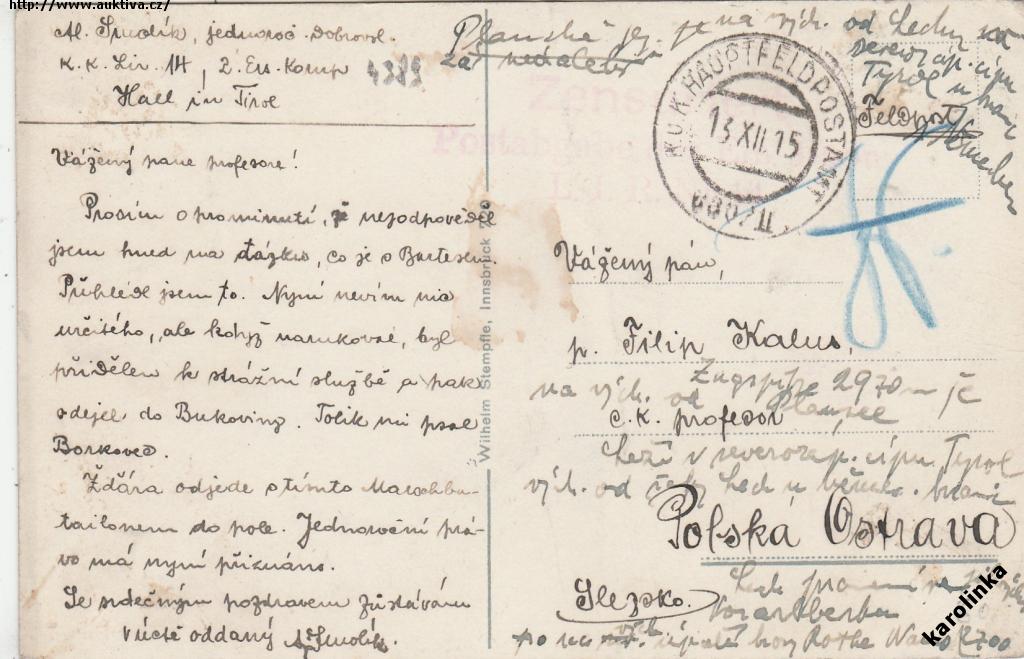 http://www.auktiva.cz/
Al. Smolík, jednoroč. dobrovol.
K.K. Lir. 14, 2. Ers. Komp
4389
Hall in Tirol
Vážený pane profesore!
Prosím o prominutí, že nejodpověděl
jsem hned na otázku, co je s Bartesem.
Přehlédl jsem to. Nyní nevím nic
určitého, ale když narukoval, byl
přidělen k strážní službě a pak
odejel do Bukoviny. Tolik mi psal
Borkovec.
Žďára odjede s tímto Marschba-
tailonem do pole. Jednoroční prá-
vo má nyní přiznáno.
Se srdečným pozdravem zůstávám
v úctě oddaný Al Smolík.
Wilhelm Stempfle, Innsbruck
Planské jez. je na vých. od Lechu
severozáp. cípu
Tyrol u
Feldpost
Zens
K.U.K. HAUPTFELDPOSTAMT
13.XII.15
II
Vážený pán,
p. Filip Kalus,
na vých. od Zugspitze 2970 m je
Plansee
c.k. profesor
Leží v severozáp. cípu Tyrol
vých. od Lech u
Polská Ostrava
Slezsko.
Lech pramení
Vorarlbersku
hory Rothe Wand 2700
karolinka